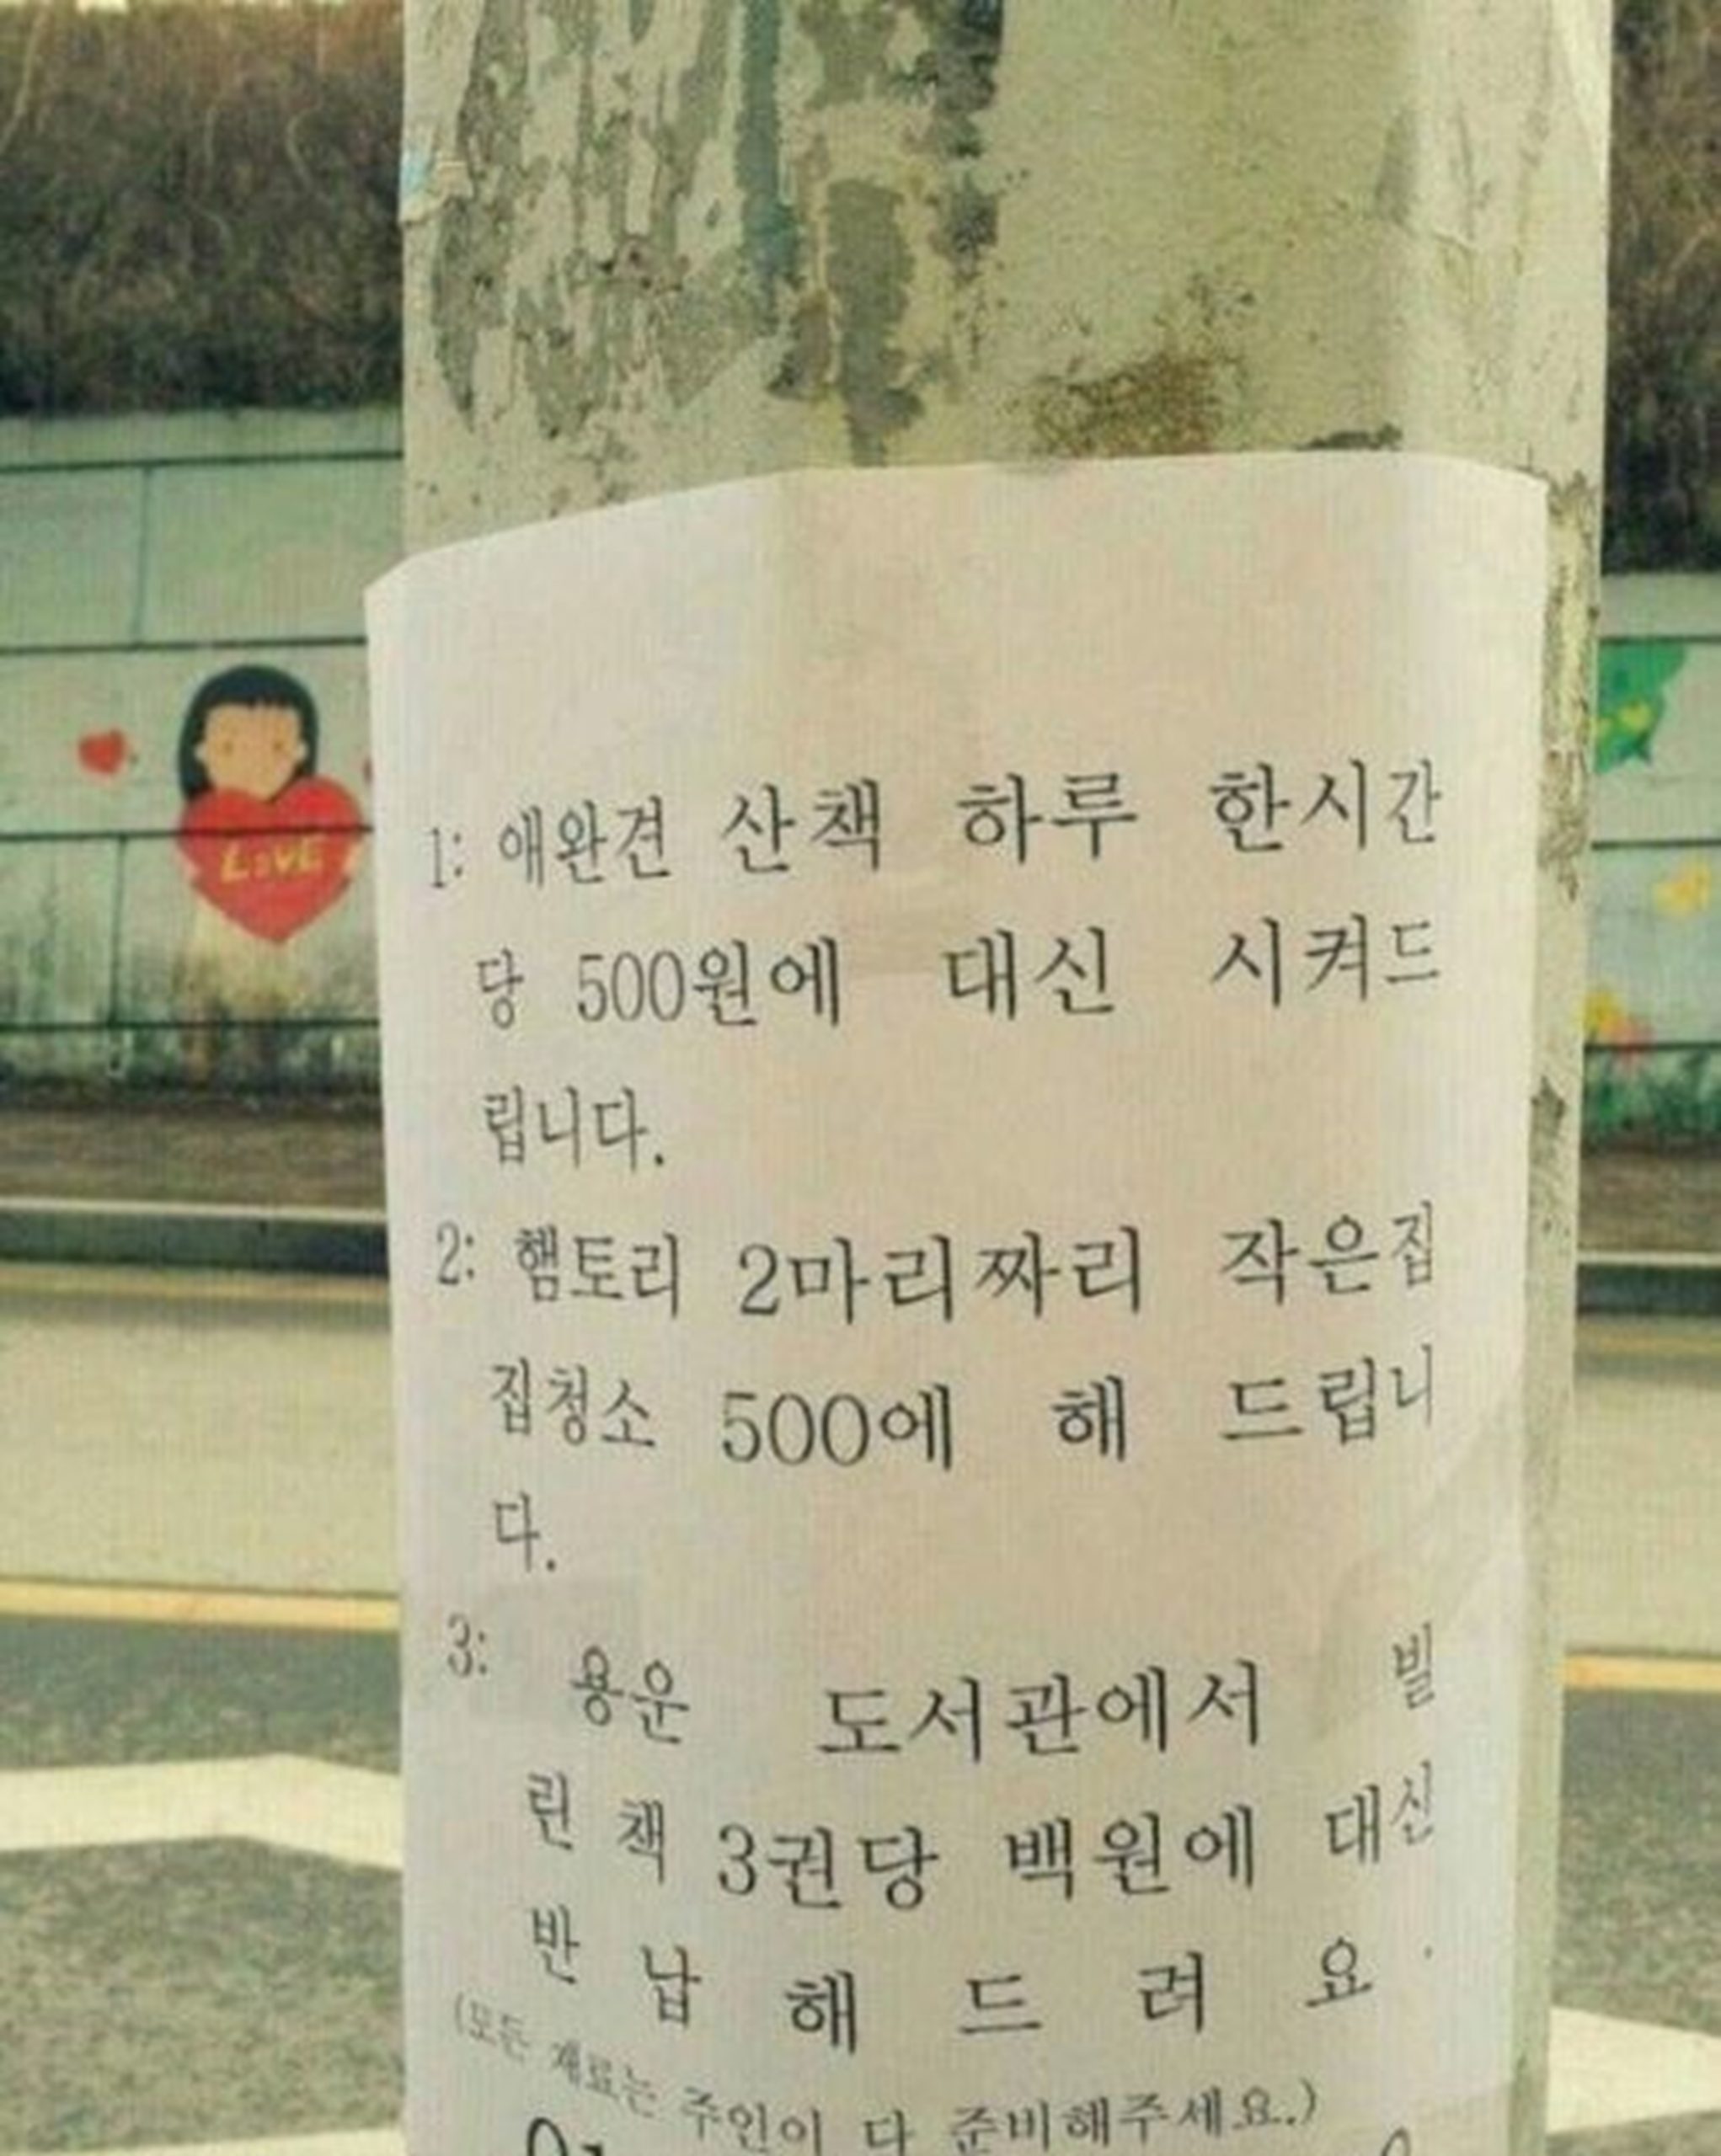 LOVE
1: 애완견 산책 하루 한시간
당 500원에 대신 시켜드
립니다.
2: 햄토리 2마리짜리 작은집
집청소 500에 해 드립니
다.
3: 용운 도서관에서 빌
린 책 3권당 백원에 대신
반 납 해 드 려 요 .
(모든 재료는 주인이 다 준비해주세요.)